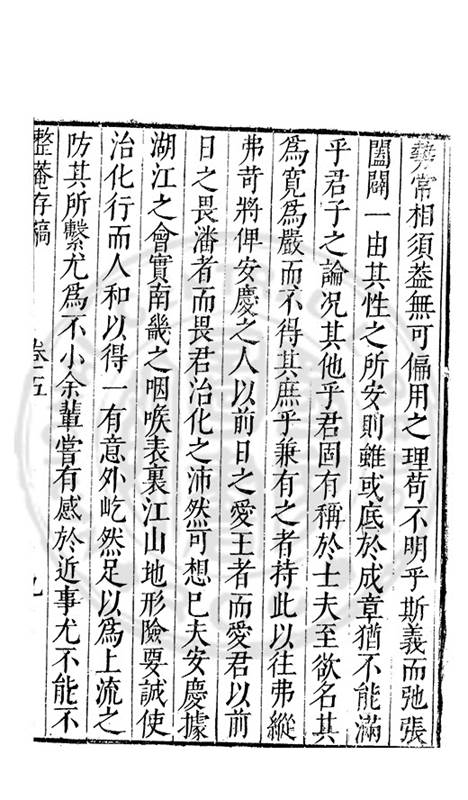 勢常相須葢無可偏用之理苟不明乎斯義而弛張
闔闢一由其性之所安則雖或底於成章猶不能滿
乎君子之論况其他乎君固有稱於士夫至欲名其
爲寬爲嚴而不得其庶乎兼有之者持此以往弗縱
弗苛將俾安慶之人以前日之愛王者而愛君以前
日之畏潘者而畏君治化之沛然可想已夫安慶據
湖江之會實南畿之咽喉表裏江山地形險要誠使
治化行而人和以得一有意外屹然足以爲上流之
防其所繫尤爲不小余輩嘗有感於近事尤不能不
整菴存稿 卷之五 九